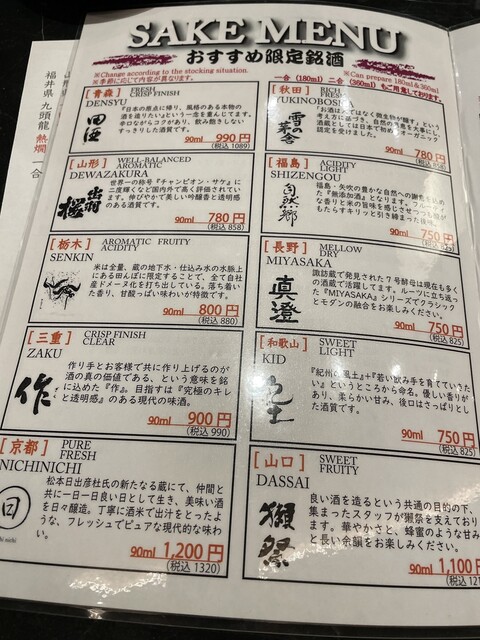 SAKE MENU
おすすめ限定銘酒
※Change according to the stocking situation.
※季節に応じて内容が異なります。
※Can prepare 180ml&360ml
一合 (180ml) 二合 (360ml) もご用意しております。
福井県 九頭龍 熱燗 一合
[青森] FRESH
FINISHING
DENSYU
田酒
『日本の原点に帰り、風格のある本物の
酒を造りたい』という一念を重んじてます。
辛口ながらコクがあり、飲み飽きしない
すっきりした酒質です。
90ml 990円
(税込 1089)
[山形] WELL-BALANCED
AROMATIC
DEWAZAKURA
出羽桜
世界一の称号『チャンピオン・サケ』に
二度輝くなど国内外で高く評価されていま
す。伸びやかで美しい吟醸香と透明感
のある酒質です。
90ml 780円
(税込 858)
[栃木] AROMATIC FRUITY
ACIDITY
SENKIN
米は全量、蔵の地下水・仕込み水の水脈上
にある田んぼに限定することで、全て自社
産ドメーヌ化を打ち出している。落ち着い
た香り、甘酸っぱい味わいが特徴です。
90ml 800円
(税込 880)
[三重] CRISP FINISH
CLEAR
ZAKU
作
作り手とお客様で共に作り上げるのが
酒の真の価値である、という意味を銘
に込めた『作』。目指すは『究極のキレ
と透明感』のある現代の味酒。
90ml 900円
(税込 990)
[京都] PURE
FRESH
NICHINICHI
日
松本日出彦杜氏の新たなる蔵にて、仲間と
共に一日一日良い日として生き、美味い酒
を日々醸造。丁寧に酒米で出汁をとったよ
うな、フレッシュでピュアな現代的な味わ
い。
90ml 1,200円
(税込 1320)
[秋田] RICH
YUKINOBOSHA
雪の茅舎
『お酒は人ではなく微生物が醸す』という
考え方に基づき、自然の
酒蔵としては日本で初めてオーガニック
認定を受けました。
90ml 780円
(税込 858)
[福島] ACIDITY
LIGHT
SHIZENGOU
自然郷
福島・矢吹の豊かな自然への
『無添加酒』となります。
な香りと米の旨味を感じさせつつも
もたらすキリッと引き締まった後味
90ml 750円
[長野] MELLOW
DRY
MIYASAKA
真澄
諏訪蔵で発見された7号酵母は現在も多く
の酒蔵で活躍してます。ルーツに立ち返っ
た『MIYASAKA』シリーズでクラシック
とモダンの融合をお楽しみください。
90ml 750円
(税込 825)
[和歌山] SWEET
LIGHT
KID
紀土
『紀州の風土』+『若い飲み手を育てていきた
い』というところから命名。優しい香りが
あり、柔らかい甘み、後口はさっぱりとし
た酒質です。
90ml 750円
(税込 825)
[山口] SWEET
FRUITY
DASSAI
獺祭
良い酒を造るという共通の目的の下、
集まったスタッフが獺祭を支えており
ます。華やかさと、蜂蜜のような甘み
と長い余韻をお楽しみください。
90ml 1,100円
(税込 121